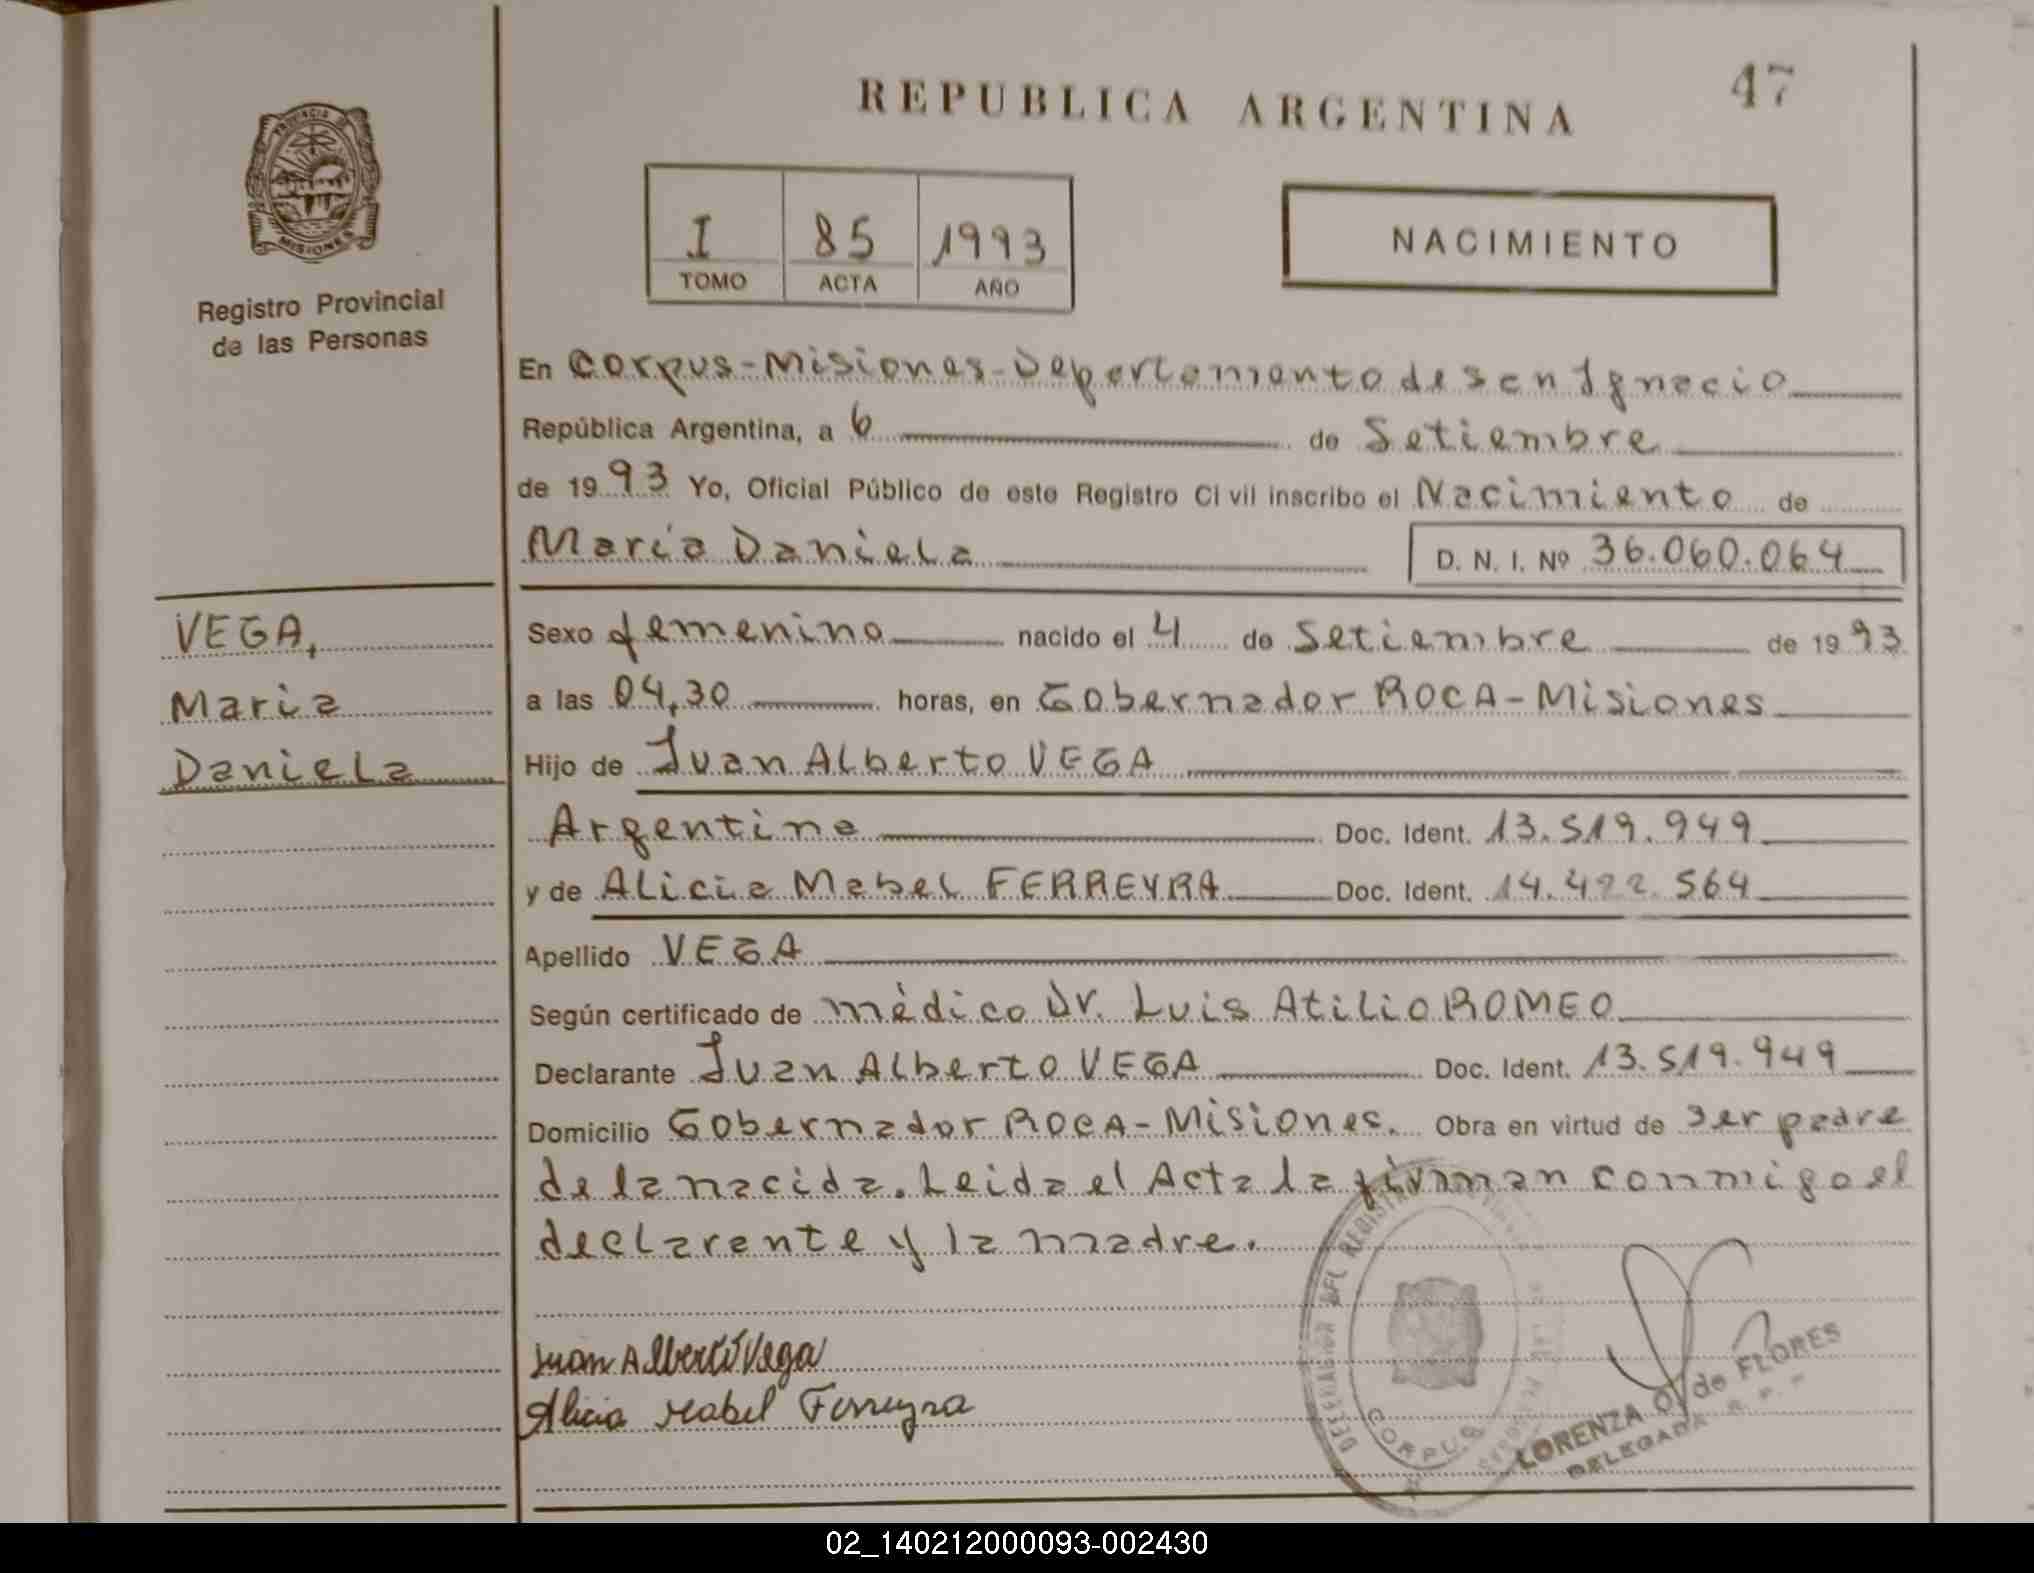 REPUBLICA ARGENTINA
47
PROVINCIA DE
MISIONES
Registro Provincial
de las Personas
I 85 1993
TOMO ACTA AÑO
NACIMIENTO
En Corpus-Misiones-Departamento de San Ignacio
República Argentina, a 6 de Setiembre
de 1993 Yo, Oficial Público de este Registro Civil inscribo el Nacimiento de
María Daniela D. N. I. Nº 36.060.064
VEGA,
Maria
Daniela
Sexo femenino nacido el 4 de Setiembre de 1993
a las 04,30 horas, en Gobernador ROCA-Misiones
Hijo de Juan Alberto VEGA
Argentino Doc. Ident. 13.519.949
y de Alicia Mabel FERREYRA Doc. Ident. 14.422.564
Apellido VEGA
Según certificado de médico Dr. Luis Atilio ROMEO
Declarante Juan Alberto VEGA Doc. Ident. 13.519.949
Domicilio Gobernador ROCA-Misiones. Obra en virtud de ser padre
de la nacida. Leida el Acta la firman conmigo el
declarante y la madre.
Juan Alberto Vega
Alicia Mabel Ferreyra
DELEGACION DEL REGISTRO
CORPUS
LORENZA O. de FLORES
DELEGADA R. P. P.
02_140212000093-002430